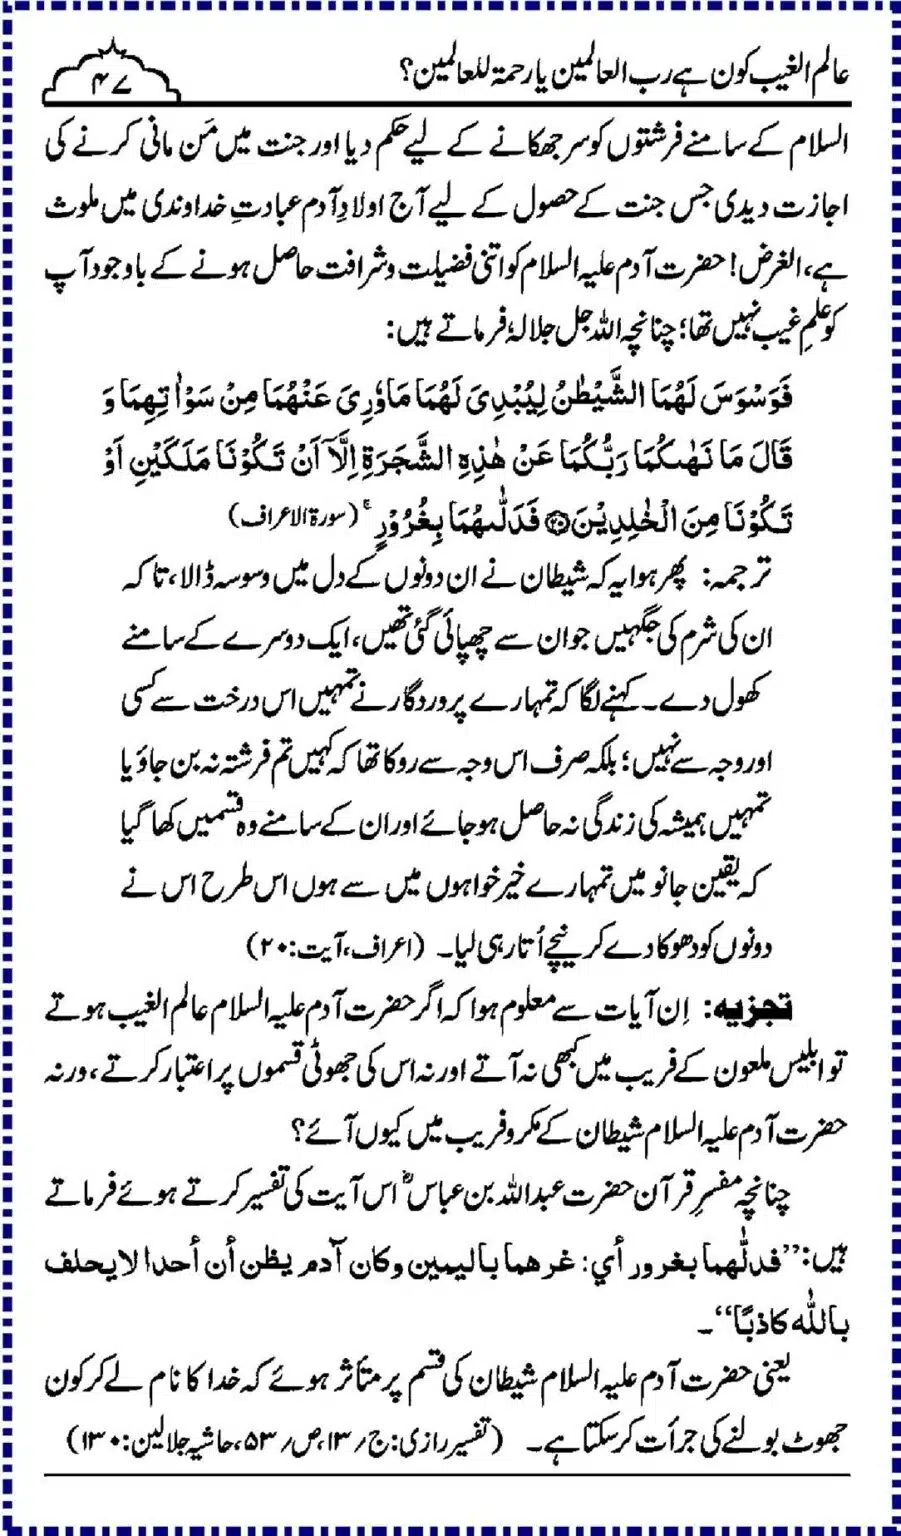 عالم الغیب کون ہے رب العالمین یا رحمۃ للعالمین؟
۴۷
السلام کے سامنے فرشتوں کو سر جھکانے کے لیے حکم دیا اور جنت میں مَن مانی کرنے کی
اجازت دیدی جس جنت کے حصول کے لیے آج اولادِ آدم عبادتِ خداوندی میں ملوث
ہے، الغرض! حضرت آدم علیہ السلام کو اتنی فضیلت و شرافت حاصل ہونے کے باوجود آپ
کو علمِ غیب نہیں تھا؛ چنانچہ اللہ جل جلالہٗ فرماتے ہیں:
فَوَسْوَسَ لَهُمَا الشَّيْطٰنُ لِيُبْدِىَ لَهُمَا مَاوٗرِىَ عَنْهُمَا مِنْ سَوْاٰتِهِمَا وَ
قَالَ مَا نَهٰىكُمَا رَبُّكُمَا عَنْ هٰذِهِ الشَّجَرَةِ اِلَّآ اَنْ تَكُوْنَا مَلَكَيْنِ اَوْ
تَكُوْنَا مِنَ الْخٰلِدِيْنَ۝۲۰ فَدَلّٰىهُمَا بِغُرُوْرٍ ۚ (سورۃ الاعراف)
ترجمہ: پھر ہوا یہ کہ شیطان نے ان دونوں کے دل میں وسوسہ ڈالا، تاکہ
ان کی شرم کی جگہیں جو ان سے چھپائی گئی تھیں، ایک دوسرے کے سامنے
کھول دے۔ کہنے لگا کہ تمہارے پروردگار نے تمہیں اس درخت سے کسی
اور وجہ سے نہیں؛ بلکہ صرف اس وجہ سے روکا تھا کہ کہیں تم فرشتہ نہ بن جاؤ یا
تمہیں ہمیشہ کی زندگی نہ حاصل ہو جائے اور ان کے سامنے وہ قسمیں کھا گیا
کہ یقین جانو میں تمہارے خیر خواہوں میں سے ہوں اس طرح اس نے
دونوں کو دھوکا دے کر نیچے اُتار ہی لیا۔ (اعراف، آیت: ۲۰)
تجزیہ: اِن آیات سے معلوم ہوا کہ اگر حضرت آدم علیہ السلام عالم الغیب ہوتے
تو ابلیس ملعون کے فریب میں کبھی نہ آتے اور نہ اس کی جھوٹی قسموں پر اعتبار کرتے، ورنہ
حضرت آدم علیہ السلام شیطان کے مکر و فریب میں کیوں آئے؟
چنانچہ مفسرِ قرآن حضرت عبداللہ بن عباسؓ اس آیت کی تفسیر کرتے ہوئے فرماتے
ہیں: ’’فدلّٰهما بغرور أي: غرهما باليمين وكان آدم يظن أن أحدا لايحلف
بالله كاذبًا‘‘۔
یعنی حضرت آدم علیہ السلام شیطان کی قسم پر متأثر ہوئے کہ خدا کا نام لے کر کون
جھوٹ بولنے کی جرأت کر سکتا ہے۔ (تفسیر رازی: ج؍۱۳، ص؍۵۳، حاشیہ جلالین: ۱۳۰)